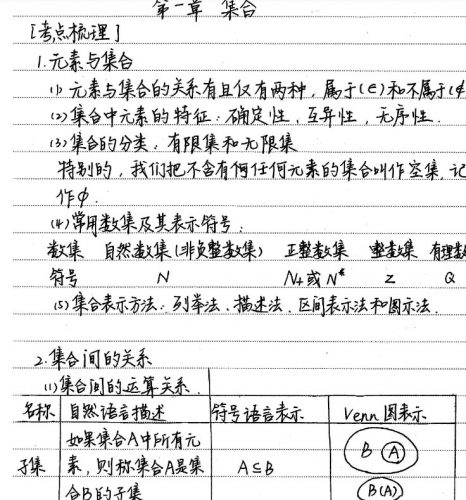 第一章 集合
[考点梳理]
1.元素与集合
(1) 元素与集合的关系有且仅有两种，属于(∈)和不属于(∉
(2)集合中元素的特征：确定性，互异性，无序性．
(3)集合的分类：有限集和无限集
特别的，我们把不含有何任何元素的集合叫作空集，记
作φ．
(4)常用数集及其表示符号：
数集 自然数集(非负整数集) 正整数集 整数集 有理数
符号 N N₊或N* Z Q
(5)集合表示方法：列举法、描述法、区间表示法和图示法．
2.集合间的关系
(1)集合间的运算关系．
名称 自然语言描述 符号语言表示 Venn图表示
子集 如果集合A中所有元
素，则称集合A是集
合B的子集
A⊆B
B A
B(A)